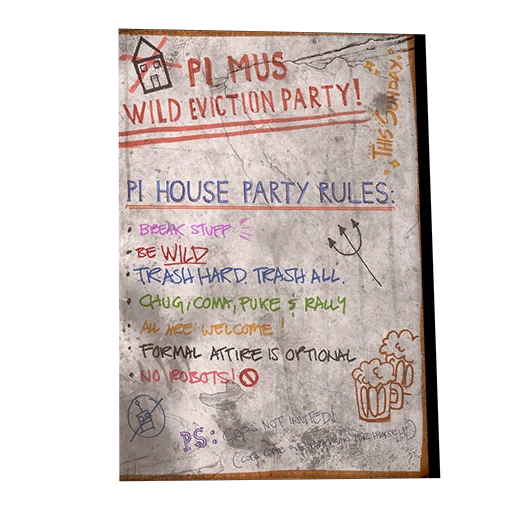 PI MUS
WILD EVICTION PARTY!
THIS SUNDAY.
PI HOUSE PARTY RULES:
• BREAK STUFF
• BE WILD
• TRASH HARD. TRASH ALL.
• CHUG, COMA, PUKE & RALLY
• ALL ARE WELCOME!
• FORMAL ATTIRE IS OPTIONAL
• NO ROBOTS!
PS: COPS NOT INVITED!